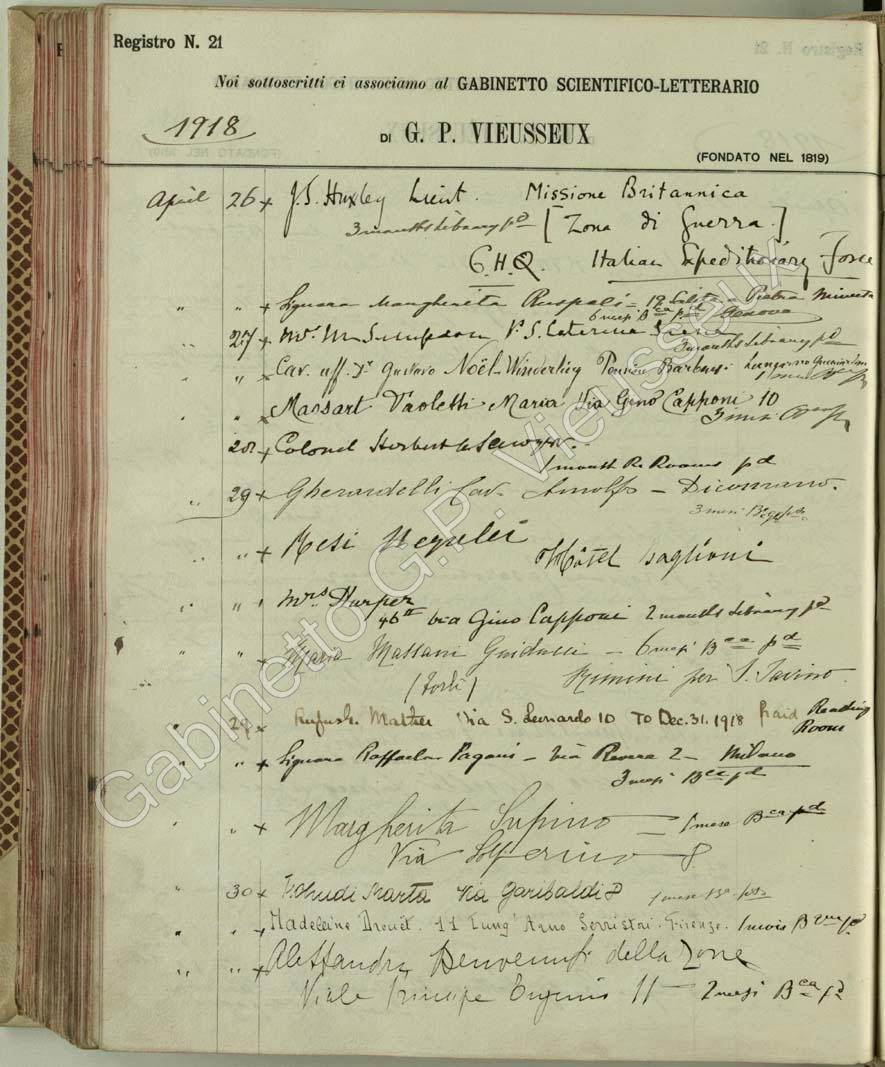 Registro N. 21
Noi sottoscritti ci associamo al GABINETTO SCIENTIFICO-LETTERARIO
1918
DI G. P. VIEUSSEUX
(FONDATO NEL 1819)
April 26 x J. S. Huxley Lieut. Missione Britannica
3 months Library pd [Zona di Guerra.]
G.H.Q. Italian Expeditionary Force
" " x Signora Margherita Ruspoli = 19 Salita Pietra Minuta
6 mesi Bca pd Genova
27 x Mrs. M Simpson V. S. Caterina Siena
3 months Library pd
" x Cav. uff. Dr Gustavo Noël-Winderling Pension Barbensi Lungarno Guicciardini
1 mese
" " Massart Paoletti Maria Via Gino Capponi 10
3 mesi
28 x Colonel Herbert
1 month R. Rooms pd
" 29 x Gherardelli Cav. Arnolfo - Dicomano.
3 mesi Bca pd
" x Resi
Hôtel Baglioni
" " ' Mrs Harper
46 via Gino Capponi 2 months Library pd
" " Maria Massani Guiducci - 6 mesi Bca pd
(Forlì) Rimini per S. Savino.
" 29 x Rufus Mather Via S. Leonardo 10 To Dec. 31. 1918 paid Reading
Room
" " x Signora Raffaella Pagani - Via Rovere 2 - Milano
3 mesi Bca pd
" " x Margherita Supino = 1 mese Bca pd
Via Solferino 8
" 30 x Marta Via Garibaldi 8 1 mese Bca pd
" " Madeleine Drouët. 11 Lung'Arno Serristori. Firenze. 1 mois B pd
" " x Alessandra Benvenuti della Zonca
Viale Principe Eugenio 11 - 2 mesi Bca pd
Gabinetto G.P. Vieusseux